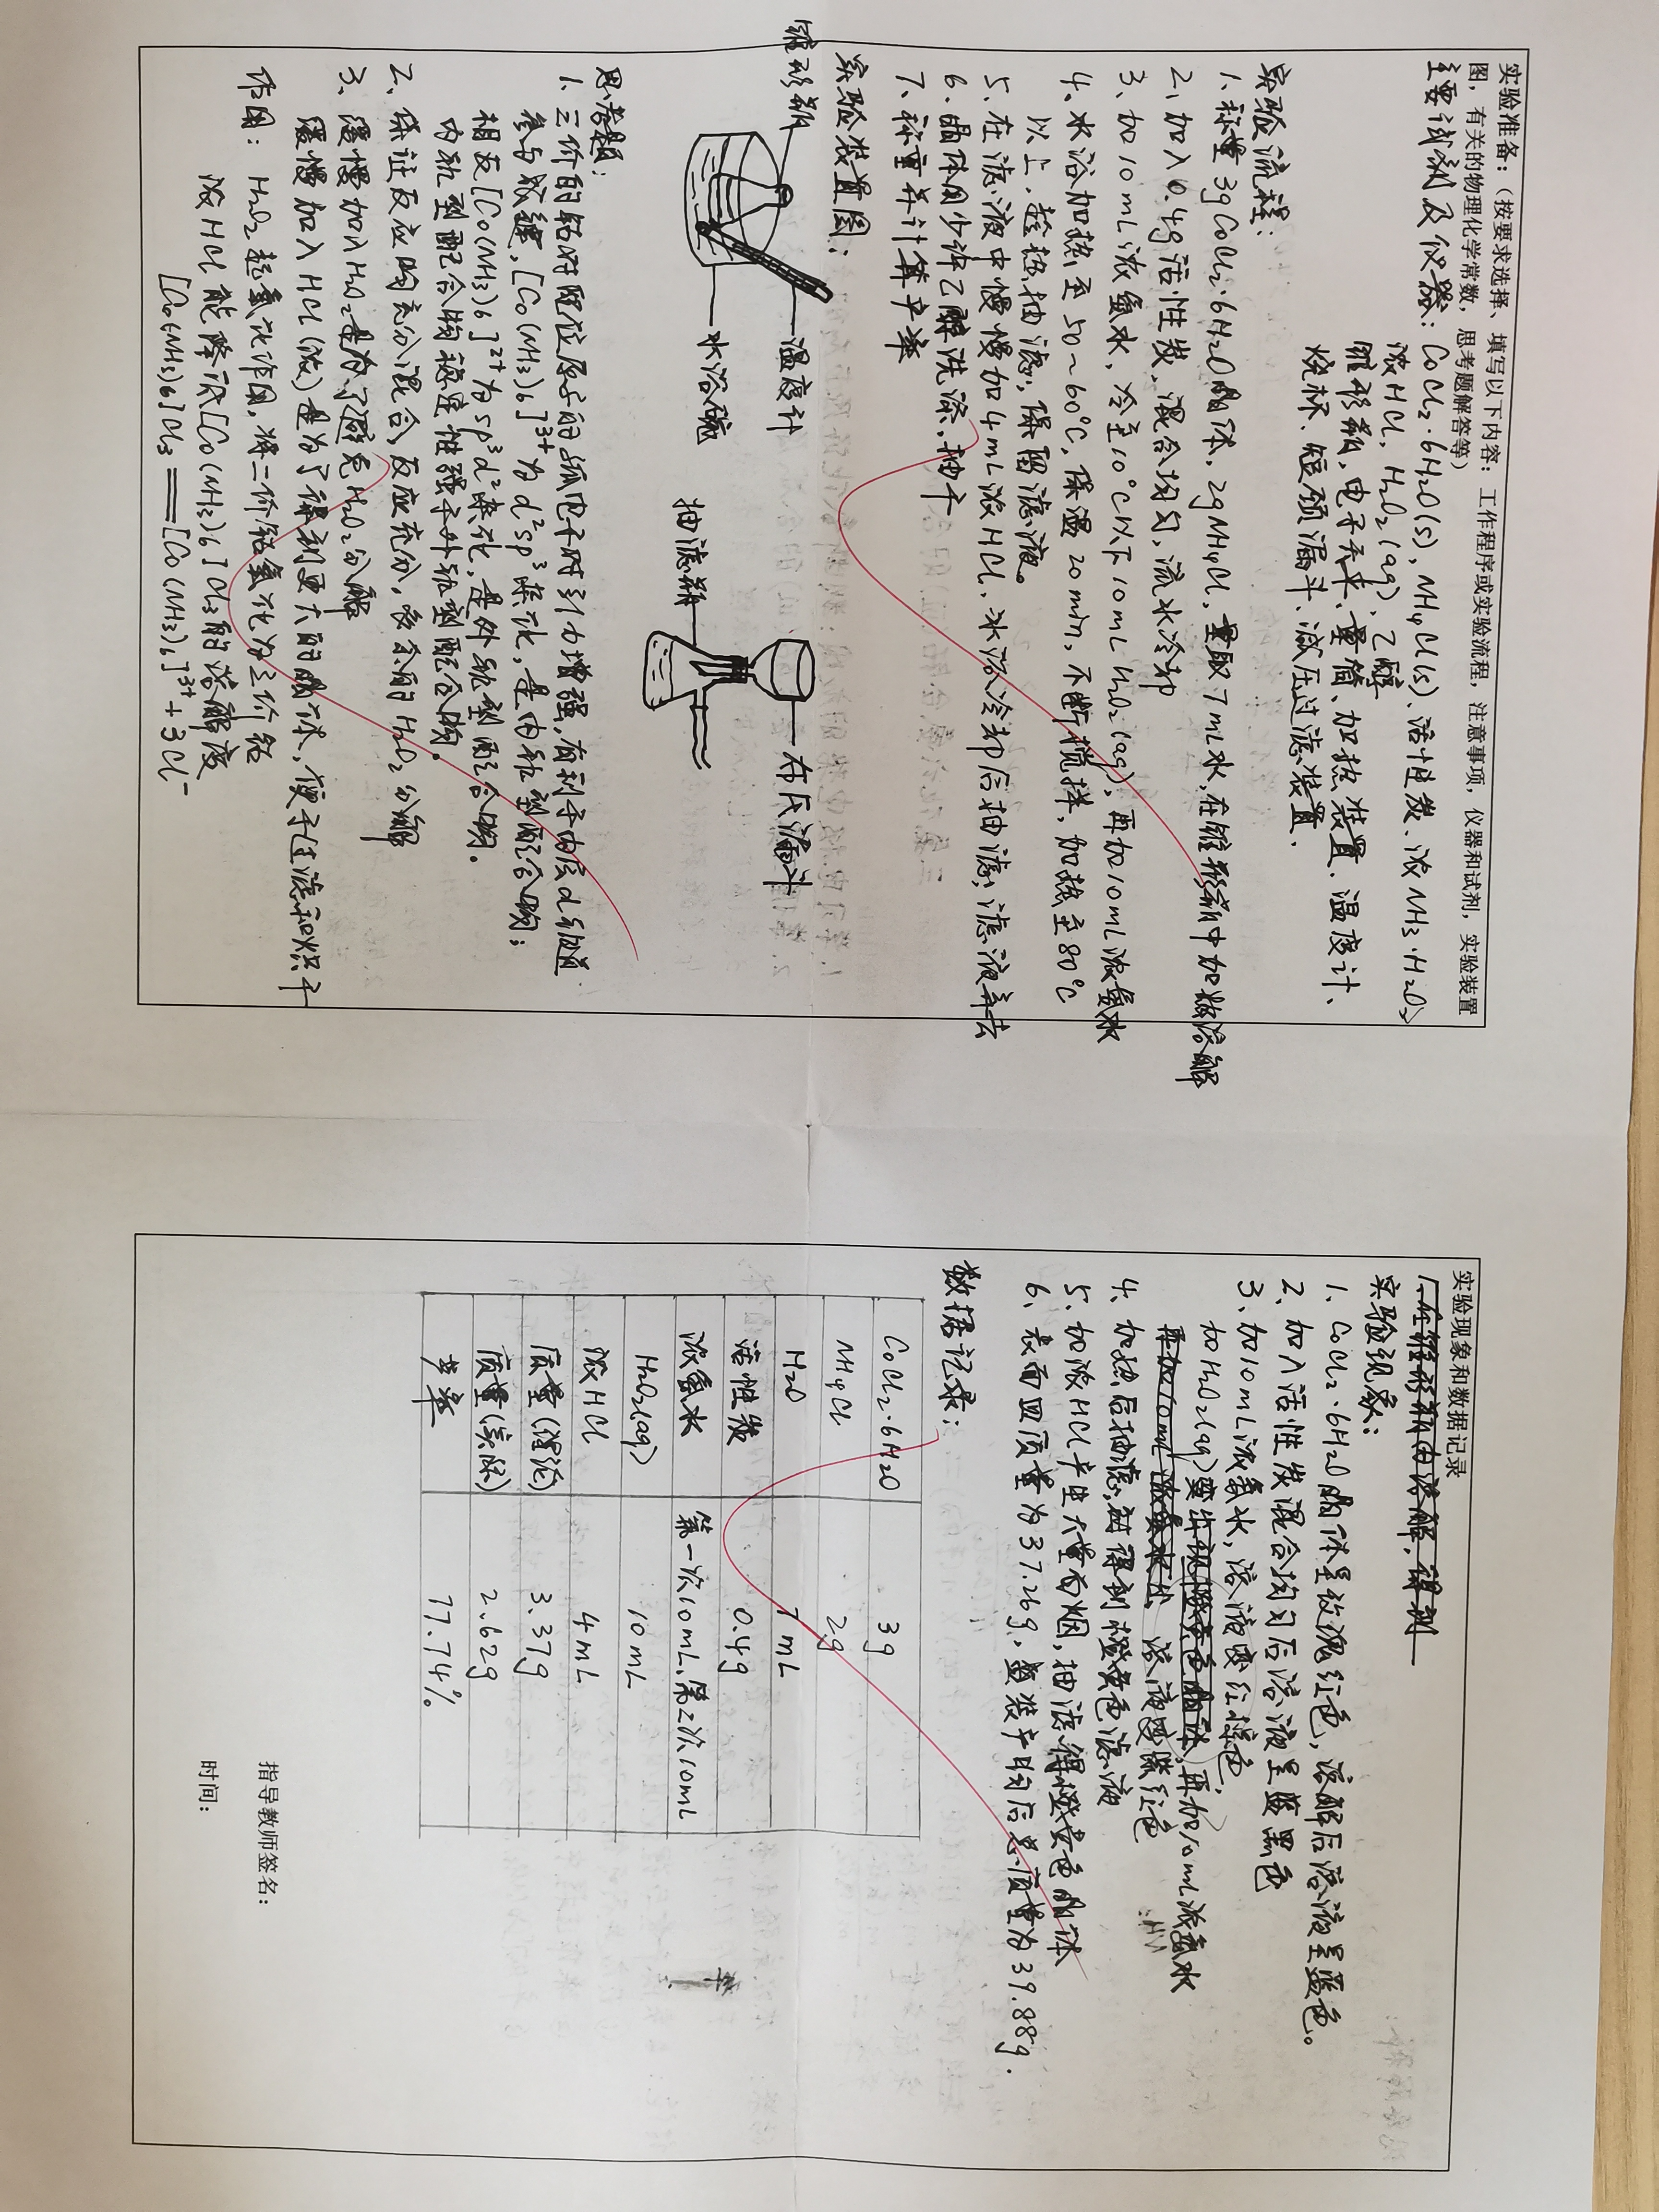 实验准备：（按要求选择、填写以下内容：工作程序或实验流程，注意事项，仪器和试剂，实验装置
图，有关的物理化学常数，思考题解答等）
主要试剂及仪器：CoCl₂·6H₂O(s), NH₄Cl(s)、活性炭、浓NH₃·H₂O、
浓HCl, H₂O₂(aq)、乙醇
锥形瓶，电子天平、量筒、加热装置、温度计、
烧杯、短颈漏斗、减压过滤装置.
实验流程：
1、称量3gCoCl₂·6H₂O晶体，2gNH₄Cl，量取7mL水，在锥形瓶中加热溶解
2、加入0.4g活性炭，混合均匀，流水冷却
3、加10mL浓氨水，冷至10℃以下10mL H₂O₂(aq)，再加10mL浓氨水
4、水浴加热至50~60℃，保温20min，不断搅拌，加热至80℃
以上，趁热抽滤，保留滤液。
5、在滤液中慢慢加4mL浓HCl，冰浴冷却后抽滤，滤液弃去
6、晶体用少许乙醇洗涤，抽干
7、称重并计算产率
实验装置图：
锥形瓶
温度计
水浴锅
抽滤瓶
布氏漏斗
思考题：
1、三价的钴对配位原子的孤电子对引力增强，有利于内层d轨道
参与成键，[Co(NH₃)₆]³⁺为d²sp³杂化，是内轨型配合物；
相反[Co(NH₃)₆]²⁺为sp³d²杂化，是外轨型配合物.
内轨型配合物稳定性强于外轨型配合物.
2、保证反应均充分混合，反应充分，多余的H₂O₂分解
3、缓慢加入H₂O₂是为了避免H₂O₂分解
缓慢加入HCl（浓）是为了得到更大的晶体，便于过滤和烘干
作用：H₂O₂起氧化作用，将二价钴氧化为三价钴
浓HCl能降低[Co(NH₃)₆]Cl₃的溶解度
[Co(NH₃)₆]Cl₃ ═══ [Co(NH₃)₆]³⁺+3Cl⁻
实验现象和数据记录
1.在锥形瓶中溶解，得到
实验现象：
1、CoCl₂·6H₂O晶体呈玫瑰红色，溶解后溶液呈蓝色。
2、加入活性炭混合均匀后溶液呈蓝黑色
3、加10mL浓氨水，溶液变红棕色
加H₂O₂(aq)变, 再加10mL浓氨水
再加10mL浓氨水 溶液变深红色
4、加热后抽滤，得到橙黄色滤液
5、加浓HCl产生大量白烟，抽滤得橙黄色晶体
6、表面皿质量为37.26g，盛装产物后总质量为39.88g.
数据记录：
CoCl₂·6H₂O 3g
NH₄Cl 2g
H₂O 7mL
活性炭 0.4g
浓氨水 第一次10mL、第2次10mL
H₂O₂(aq) 10mL
浓HCl 4mL
质量（理论） 3.37g
质量（实际） 2.62g
产率 77.74%
指导教师签名：
时间：